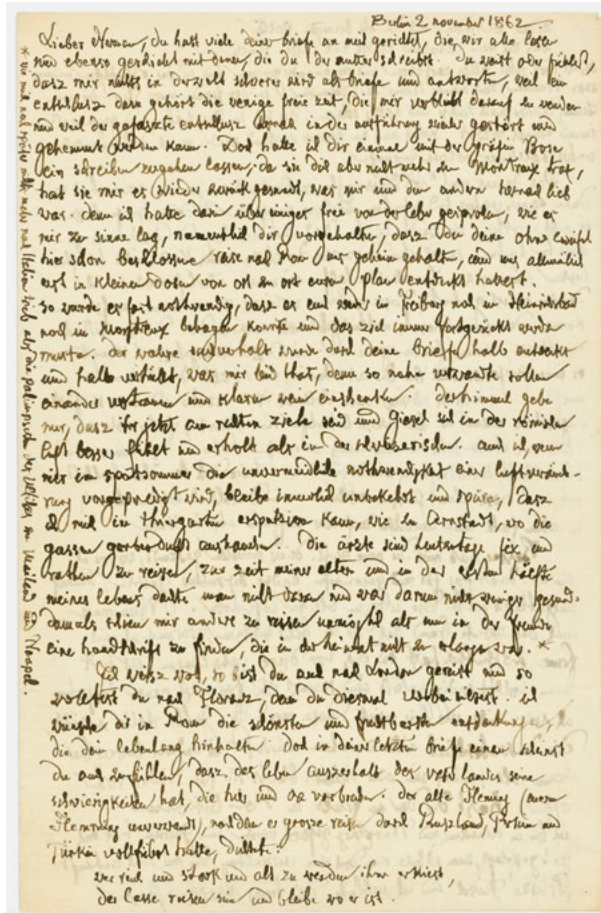 Berlin 2 november 1862
Lieber Herman, du hast viele deiner briefe an mich gerichtet, die wir alle lesen
und ebenso geschieht mit denen, die du der mutter schreibst. du weist oder fühlst,
dasz mir nichts in der welt schwerer wird als briefe und antworten, weil ein
entschlusz dazu gehört die wenige freie zeit, die mir verbleibt darauf zu wenden
und weil der gefaszte entschlusz einmal in der ausführung wieder gestört und
gehemmt werden kann. Doch hatte ich dir einmal mit der gräfin Bose
ein schreiben zugehen lassen, da sie dich aber nicht mehr in Montreux traf,
hat sie mir es wieder zurück gesandt, was mir und den andern hernach lieb
war. denn ich hatte darin über einiges frei von der leber gesprochen, wie es
mir zu sinne lag, namentlich dir vorgehalten, dasz du deine ohne zweifel
hier schon beschlossne reise nach Rom uns geheim gehalten, und uns allmälich
erst in kleinen dosen von ort zu ort euren plan entdeckt hattest.
so wurde es fast nothwendig, dasz es euch weder in Freiburg noch in
noch in Montreux behagen konnte und das ziel immer fortgerückt werden
muste. der wahre sachverhalt wurde durch deine briefe halb entdeckt
und halb verhüllt, was mir leid that, denn so nahe verwandte sollen
einander vertrauen und klaren wein einschenken. der himmel gebe
nur, dasz ihr jetzt am rechten ziele seid und Gisel sich in der römischen
luft besser fühlt und erholt als in der schweizerischen. auch ich, wenn
mir im spätsommer die unvermeidliche nothwendigkeit einer luftverände-
rung vorgepredigt wird, bleibe innerlich unbekehrt und spüre, dasz
ich mich im thiergarten erspazieren kann, wie in Arnstadt, wo die
gassen gerberduft aushauchen. die ärzte sind heutzutage fix und
rathen zu reisen, zur zeit meiner eltern und in der ersten hälfte
meines lebens dachte man nicht daran und war darum nicht weniger gesund.
damals schien mir anders zu reisen unmöglich als um in der fremde
eine handschrift zu finden, die in der heimat nicht zu erlangen war. *
Ich weisz wol, so bist du auch nach London gereist und so
wolltest du nach Florenz, dem du diesmal vorbei reisest. ich
wünsche dir in Rom die schönsten und fruchtbarsten entdeckungen,
die dein lebenlang hinhalten. Doch in deinem letzten briefe einen scheinst
du auch zu fühlen, dasz das leben auszerhalb des vaterlandes seine
schwierigkeiten hat, die hier und da vorbrechen. der alte Flemming (unserm
Flemming unverwandt), nachdem er grosze reisen durch Ruszland, Persien und
Türkei vollführt hatte, dichtet:
wer reich und stark und alt zu werden ihm erkiest,
der lasse reisen sein und bleibe wo er ist.
* mich nach später nichts mehr nach Italien trieb als die palimpseste des Ulfilas in Mailand und Neapel.